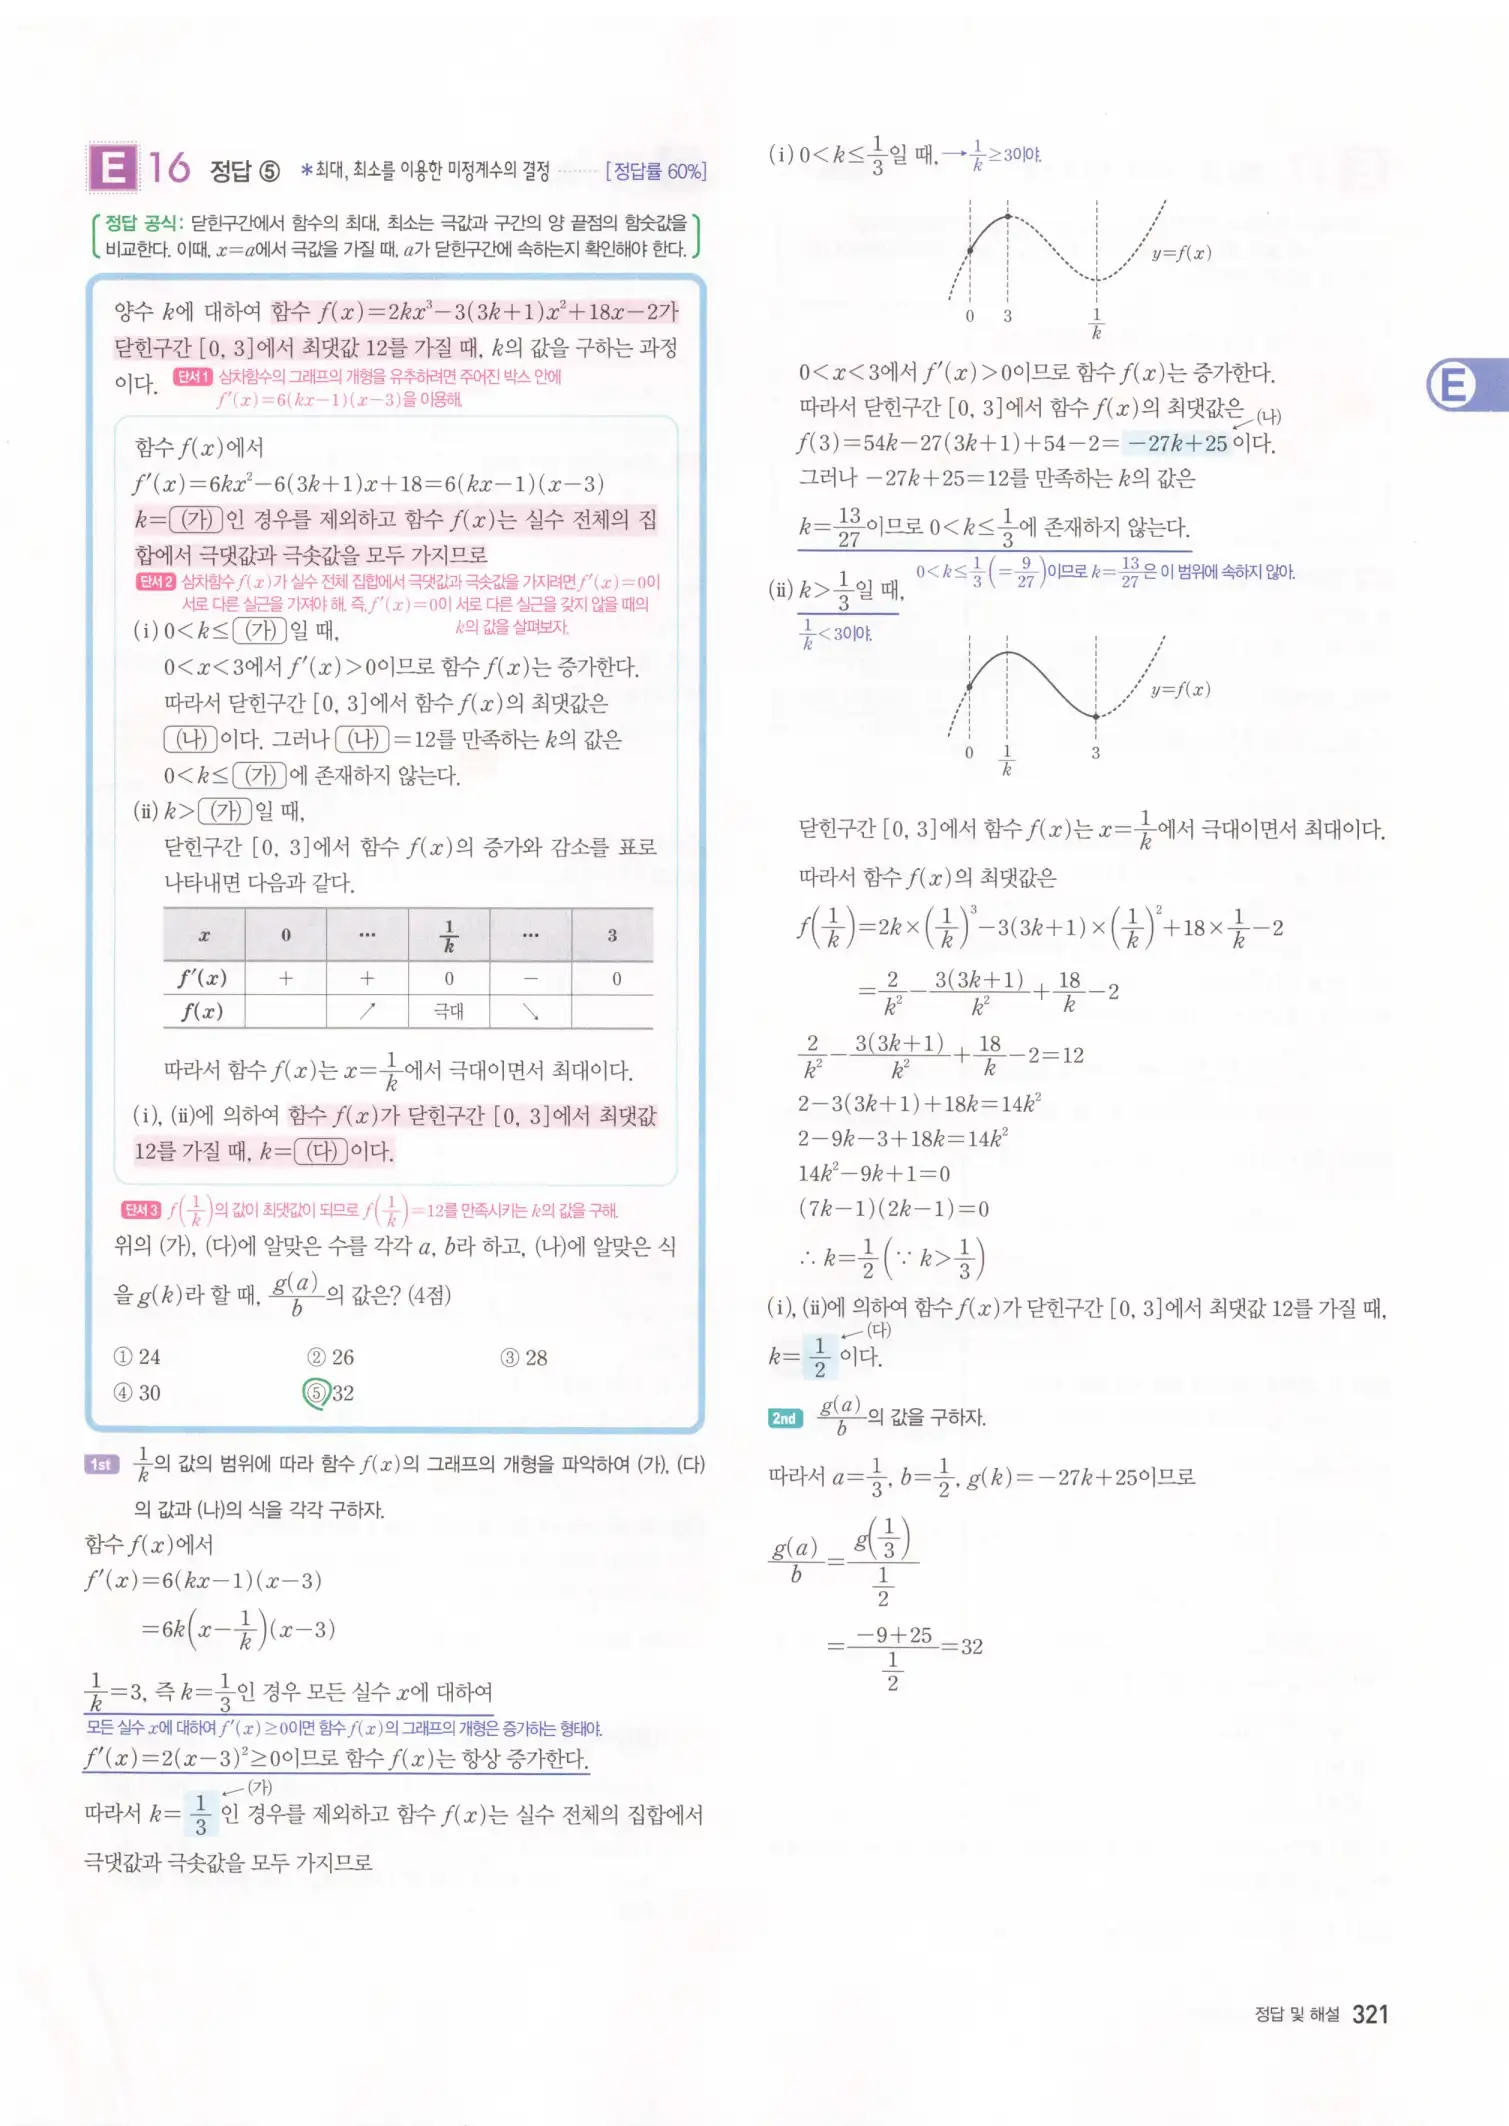 E 16 정답 ⑤ *최대, 최소를 이용한 미정계수의 결정 ········ [정답률 60%]
정답 공식: 닫힌구간에서 함수의 최대, 최소는 극값과 구간의 양 끝점의 함숫값을
비교한다. 이때, x=a에서 극값을 가질 때, a가 닫힌구간에 속하는지 확인해야 한다.
양수 k에 대하여 함수 f(x)=2kx³-3(3k+1)x²+18x-2가
닫힌구간 [0, 3]에서 최댓값 12를 가질 때, k의 값을 구하는 과정
이다. 단서1 삼차함수의 그래프의 개형을 유추하려면 주어진 박스 안에
f'(x)=6(kx-1)(x-3)을 이용해.
함수 f(x)에서
f'(x)=6kx²-6(3k+1)x+18=6(kx-1)(x-3)
k=(가)인 경우를 제외하고 함수 f(x)는 실수 전체의 집
합에서 극댓값과 극솟값을 모두 가지므로
단서2 삼차함수 f(x)가 실수 전체 집합에서 극댓값과 극솟값을 가지려면 f'(x)=0이
서로 다른 실근을 가져야 해. 즉, f'(x)=0이 서로 다른 실근을 갖지 않을 때의
k의 값을 살펴보자.
(i) 0<k≤(가)일 때,
0<x<3에서 f'(x)>0이므로 함수 f(x)는 증가한다.
따라서 닫힌구간 [0, 3]에서 함수 f(x)의 최댓값은
(나)이다. 그러나 (나)=12를 만족하는 k의 값은
0<k≤(가)에 존재하지 않는다.
(ii) k>(가)일 때,
닫힌구간 [0, 3]에서 함수 f(x)의 증가와 감소를 표로
나타내면 다음과 같다.
x 0 ··· 1/k ··· 3
f'(x) + + 0 - 0
f(x) ↗ 극대 ↘
따라서 함수 f(x)는 x=1/k에서 극대이면서 최대이다.
(i), (ii)에 의하여 함수 f(x)가 닫힌구간 [0, 3]에서 최댓값
12를 가질 때, k=(다)이다.
단서3 f(1/k)의 값이 최댓값이 되므로 f(1/k)=12를 만족시키는 k의 값을 구해.
위의 (가), (다)에 알맞은 수를 각각 a, b라 하고, (나)에 알맞은 식
을 g(k)라 할 때, g(a)/b의 값은? (4점)
① 24 ② 26 ③ 28
④ 30 ⑤ 32
1st 1/k의 값의 범위에 따라 함수 f(x)의 그래프의 개형을 파악하여 (가), (다)
의 값과 (나)의 식을 각각 구하자.
함수 f(x)에서
f'(x)=6(kx-1)(x-3)
=6k(x-1/k)(x-3)
1/k=3, 즉 k=1/3인 경우 모든 실수 x에 대하여
모든 실수 x에 대하여 f'(x)≥0이면 함수 f(x)의 그래프의 개형은 증가하는 형태야.
f'(x)=2(x-3)²≥0이므로 함수 f(x)는 항상 증가한다.
(가)
따라서 k=1/3인 경우를 제외하고 함수 f(x)는 실수 전체의 집합에서
극댓값과 극솟값을 모두 가지므로
(i) 0<k≤1/3일 때, → 1/k≥3이야.
y=f(x)
0 3 1/k
0<x<3에서 f'(x)>0이므로 함수 f(x)는 증가한다.
따라서 닫힌구간 [0, 3]에서 함수 f(x)의 최댓값은 (나)
f(3)=54k-27(3k+1)+54-2=-27k+25이다.
그러나 -27k+25=12를 만족하는 k의 값은
k=13/27이므로 0<k≤1/3에 존재하지 않는다.
0<k≤1/3(=9/27)이므로 k=13/27은 이 범위에 속하지 않아.
(ii) k>1/3일 때,
1/k<3이야.
y=f(x)
0 1/k 3
닫힌구간 [0, 3]에서 함수 f(x)는 x=1/k에서 극대이면서 최대이다.
따라서 함수 f(x)의 최댓값은
f(1/k)=2k×(1/k)³-3(3k+1)×(1/k)²+18×1/k-2
=2/k²-3(3k+1)/k²+18/k-2
2/k²-3(3k+1)/k²+18/k-2=12
2-3(3k+1)+18k=14k²
2-9k-3+18k=14k²
14k²-9k+1=0
(7k-1)(2k-1)=0
∴ k=1/2 (∵ k>1/3)
(i), (ii)에 의하여 함수 f(x)가 닫힌구간 [0, 3]에서 최댓값 12를 가질 때,
(다)
k=1/2이다.
2nd g(a)/b의 값을 구하자.
따라서 a=1/3, b=1/2, g(k)=-27k+25이므로
g(a)/b=g(1/3)/(1/2)
=(-9+25)/(1/2)=32
E
정답 및 해설 321